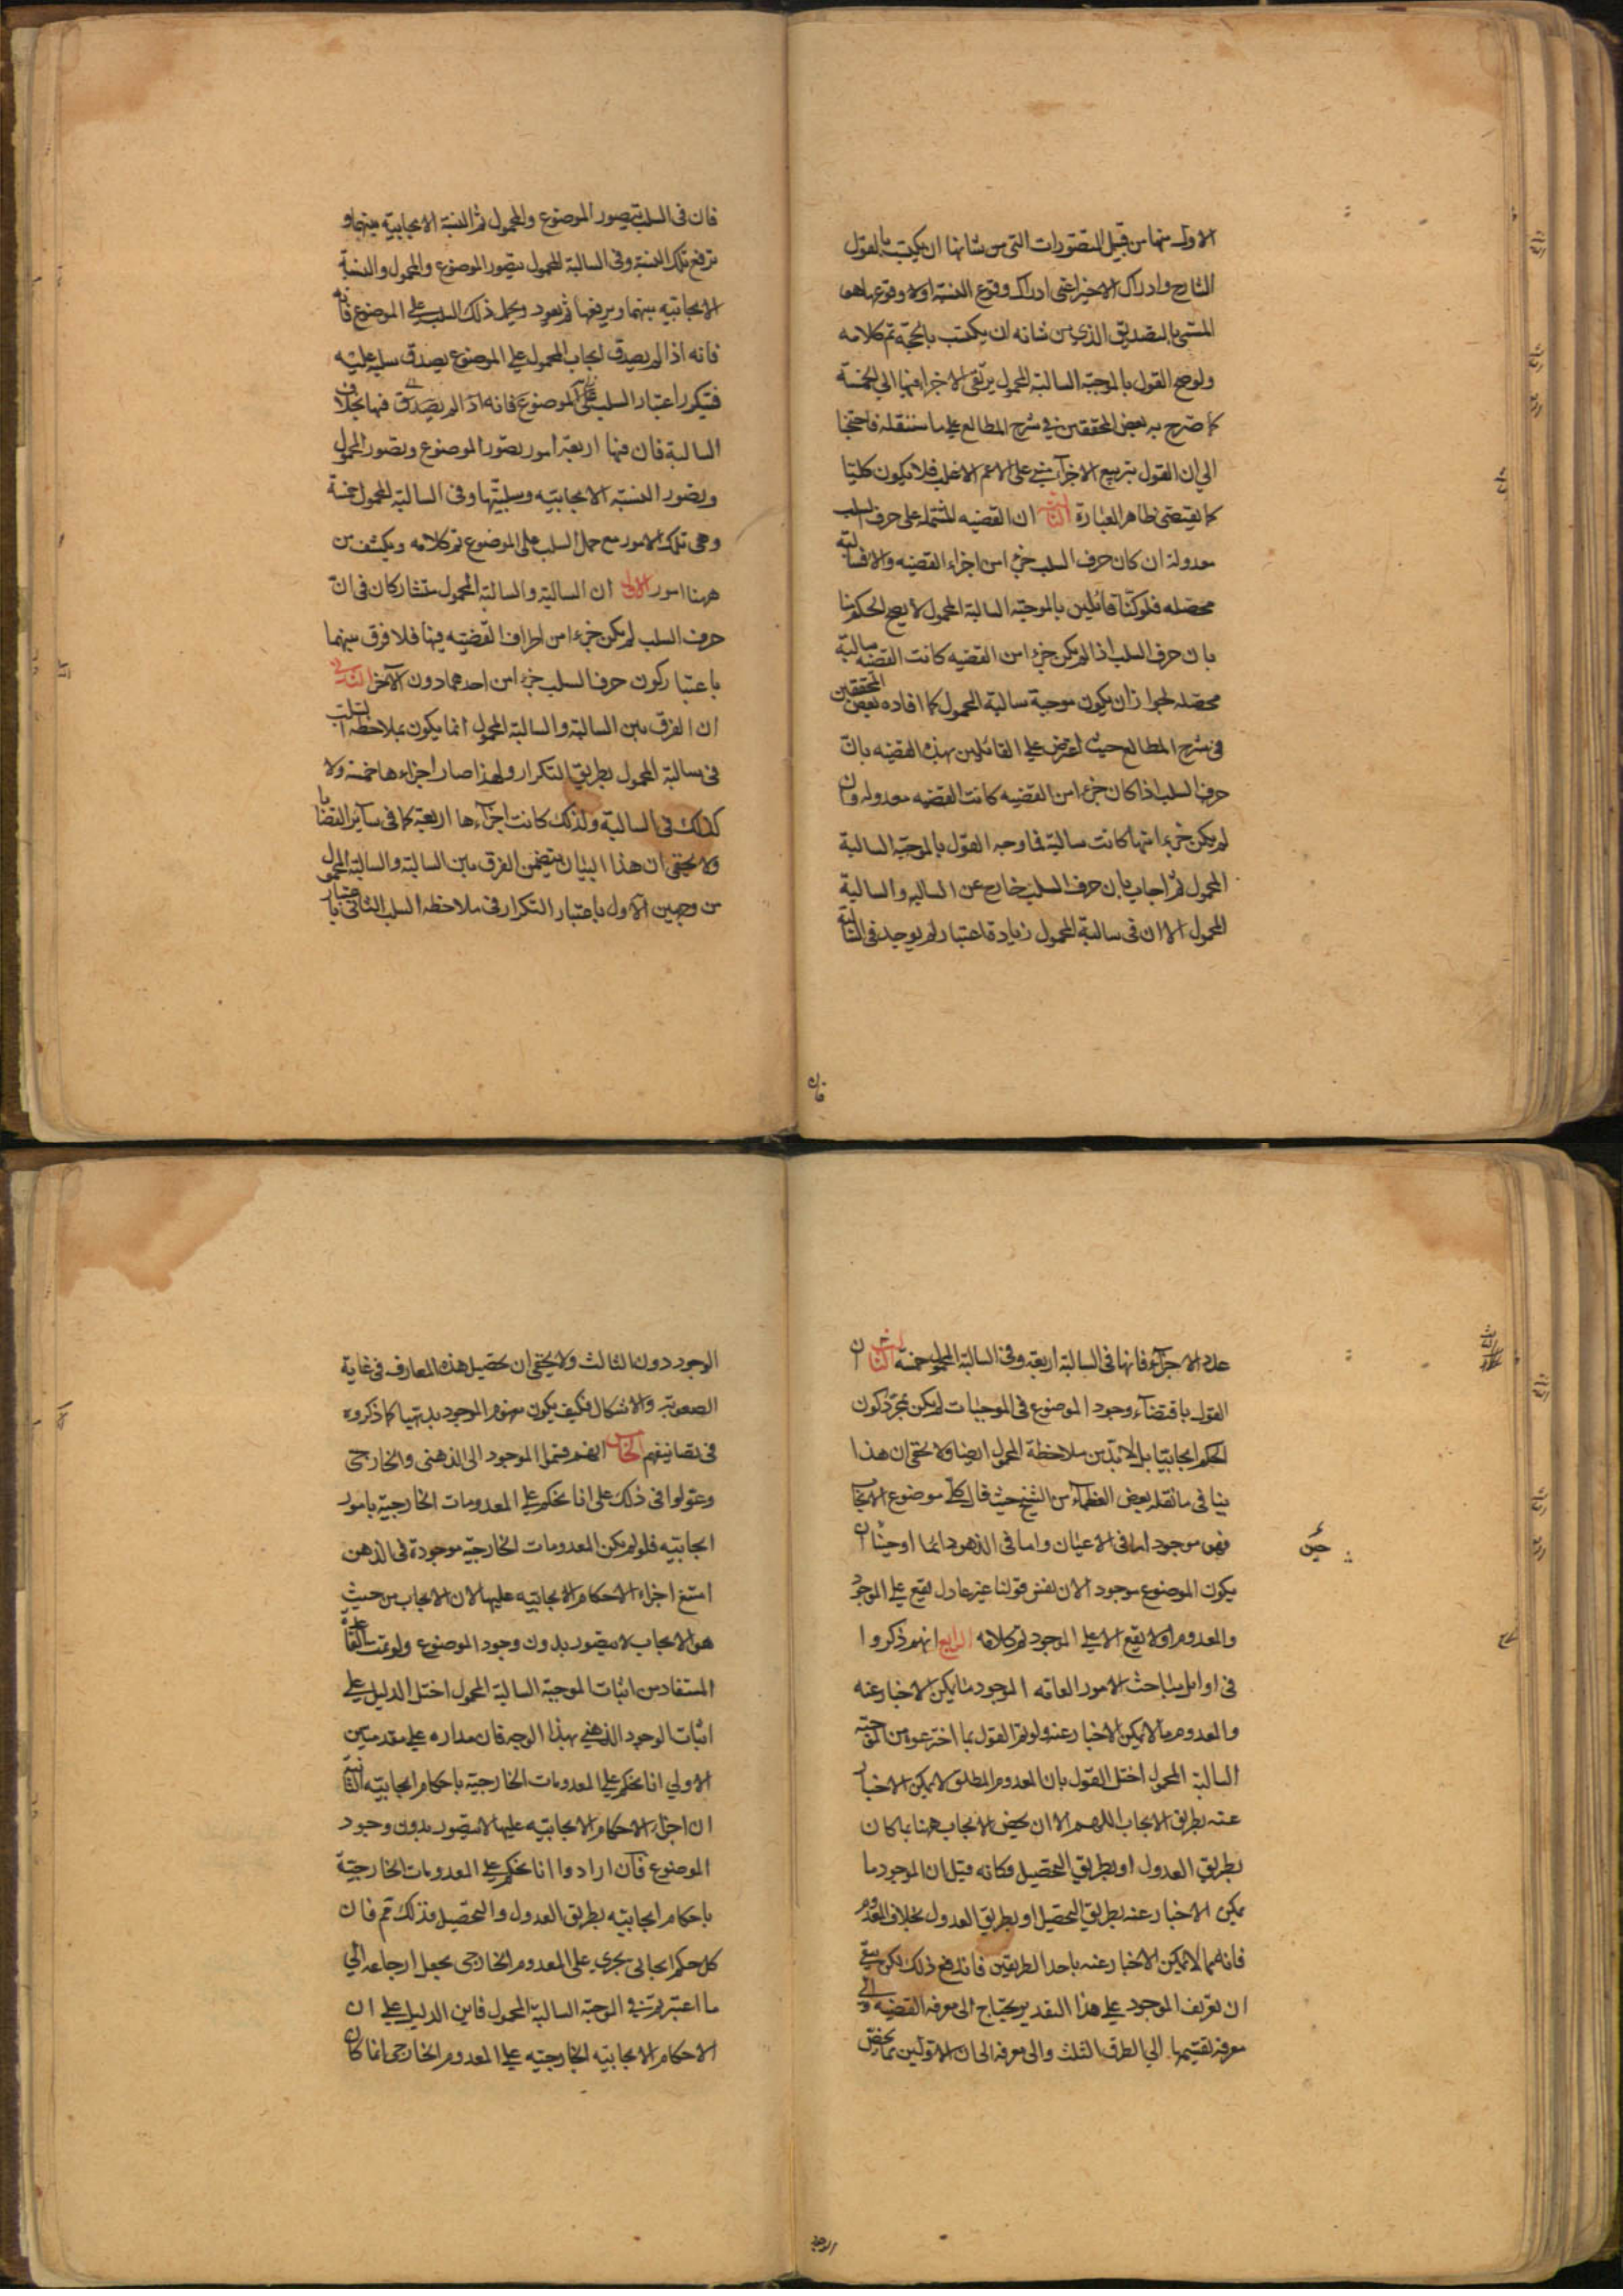 الاول منها من قبيل التصورات التي من شانها ان يكتسب بالقول
الشارح وادراك الاخير اعنى ادراك وقوع النسبة اولا وقوعها هو
المسمى بالتصديق الذي من شانه ان يكتسب بالحجة تم كلامه
ولو صح القول بالموجبة السالبة المحمول يرتقى الاجزاء فيها الى الخمسة
كما صرح به بعض المحققين في شرح المطالع على ما سننقله فاحتجنا
الى ان القول بتربيع الاجزاء مبنى على الاعم الاغلب فلا يكون كليتا
كما يقتضى ظاهر العبارة الثانى ان القضيه المشتملة على حرف السلب
معدولة ان كان حرف السلب جزءا من اجزاء القضيه والا فسالبة
محصله فلو كنا قائلين بالموجبة السالبة المحمول لا يصح الحكم منا
بان حرف السلب اذا لم يكن جزءا من القضيه كانت القضيه سالبة
محصله لجواز ان يكون موجبة سالبة المحمول كما افاده بعض المحققين
فى شرح المطالع حيث اعترض على القائلين بهذه القضيه بان
حرف السلب اذا كان جزءا من القضيه كانت القضيه معدوله وان
لم يكن جزءا منها كانت سالبة فما وجه القول بالموجبة السالبة
المحمول ثم اجاب بان حرف السلب خارج عن السالبه والسالبة
المحمول الا ان فى سالبة المحمول زيادة اعتبار لم يوجد فى السالبة
فان
فان فى السلب يتصور الموضوع والمحمول ثم النسبة الايجابيه بينهما و
ترفع تلك النسبة وفى السالبة المحمول يتصور الموضوع والمحمول والنسبة
الايجابيه بينهما ويرفعها ثم يعود ويحمل ذلك السلب على الموضوع فانه
فانه اذا لم يصدق ايجاب المحمول على الموضوع يصدق سلبه عليه
فيتكرر اعتبار السلب على الموضوع فانه اذا لم يصدق فيها بخلاف
السالبة فان فيها اربعة امور تصور الموضوع وتصور المحمول
وتصور النسبة الايجابيه وسلبها وفى السالبة المحمول خمسة
وهى تلك الامور مع حمل السلب على الموضوع تم كلامه وينكشف من
ههنا امور الاول ان السالبة والسالبة المحمول متشاركان فى ان
حرف السلب لم يكن جزءا من اطراف القضيه فيهما فلا فرق بينهما
باعتبار كون حرف السلب جزءا من احدهما دون الآخر الثانى
ان الفرق بين السالبة والسالبة المحمول انما يكون بملاحظة السلب
فى سالبة المحمول بطريق التكرار ولهذا صار اجزاءها خمسة ولا
كذلك فى السالبة ولذلك كانت اجزاءها اربعة كما فى سائر القضايا
ولا يخفى ان هذا البيان يتضمن الفرق بين السالبة والسالبة المحمول
من وجهين الاول باعتبار التكرار فى ملاحظة السلب الثانى باعتبار
عدد الاجزاء فانها فى السالبة اربعة وفى السالبة المحمول خمسة الثالث ان
القول باقتضاء وجود الموضوع فى الموجبات لم يكن بمجرد كون
الحكم ايجابيا بل لابد من ملاحظة المحمول ايضا ولا يخفى ان هذا
ينافى ما نقله بعض العظماء من الشيخ حيث قال كل موضوع الايجاب
فهو موجود اما فى الاعيان واما فى الذهن دائما او حينا ان
حين
يكون الموضوع موجود الان نفس قولنا غير عادل يقع على الموجود
والمعدوم اولا يقع الا على الموجود تم كلامه الرابع انهم ذكروا
فى اوائل مباحث الامور العامه الموجود ما يمكن الاخبار عنه
والمعدوم ما لا يمكن الاخبار عنه ولو تم القول بما اخترعوه من الموجبة
السالبة المحمول اختل القول بان المعدوم المطلق لا يمكن الاخبار
عنه بطريق الايجاب اللهم الا ان يخص الايجاب ههنا بما كان
بطريق العدول او بطريق التحصيل فكانه قيل ان الموجود ما
يمكن الاخبار عنه بطريق التحصيل او بطريق العدول بخلاف المعدوم
فانه مما لا يمكن الاخبار عنه باحد الطريقين فاندفع ذلك لكن بقى
ان تعريف الموجود على هذا التقدير يحتاج الى معرفة القضيه والى
معرفة تقسيمها الى الطرق الثلث والى معرفة ان الاولين مما يخص
الوجود
الوجود دون الثالث ولا يخفى ان تحصيل هذه المعارف فى غاية
الصعوبة والاشكال فكيف يكون مفهوم الموجود بديهيا كما ذكروه
فى تصانيفهم الخامس انهم قسموا الموجود الى الذهنى والخارجى
وعولوا فى ذلك على انا نحكم على المعدومات الخارجية بامور
ايجابيه فلو لم يكن المعدومات الخارجية موجودة فى الذهن
امتنع اجراء الاحكام الايجابيه عليها لان الايجاب من حيث
هو الايجاب لا يتصور بدون وجود الموضوع ولو تمت القاعدة
المستفاد من اثبات الموجبة السالبة المحمول اختل الدليل على
اثبات الوجود الذهنى بهذا الوجه فان مداره على مقدمتين
الاولى انا نحكم على المعدومات الخارجية باحكام ايجابيه الثانية
ان اجراء الاحكام الايجابيه عليها لا يتصور بدون وجود
الموضوع فان ارادوا انا نحكم على المعدومات الخارجية
باحكام ايجابيه بطريق العدول والتحصيل فذلك مم فان
كل حكم ايجابى يجرى على المعدوم الخارجى يحتمل ارجاعه الى
ما اعتبرتم فى الموجبة السالبة المحمول فاين الدليل على ان
الاحكام الايجابيه الخارجيه على المعدوم الخارجى انما كان